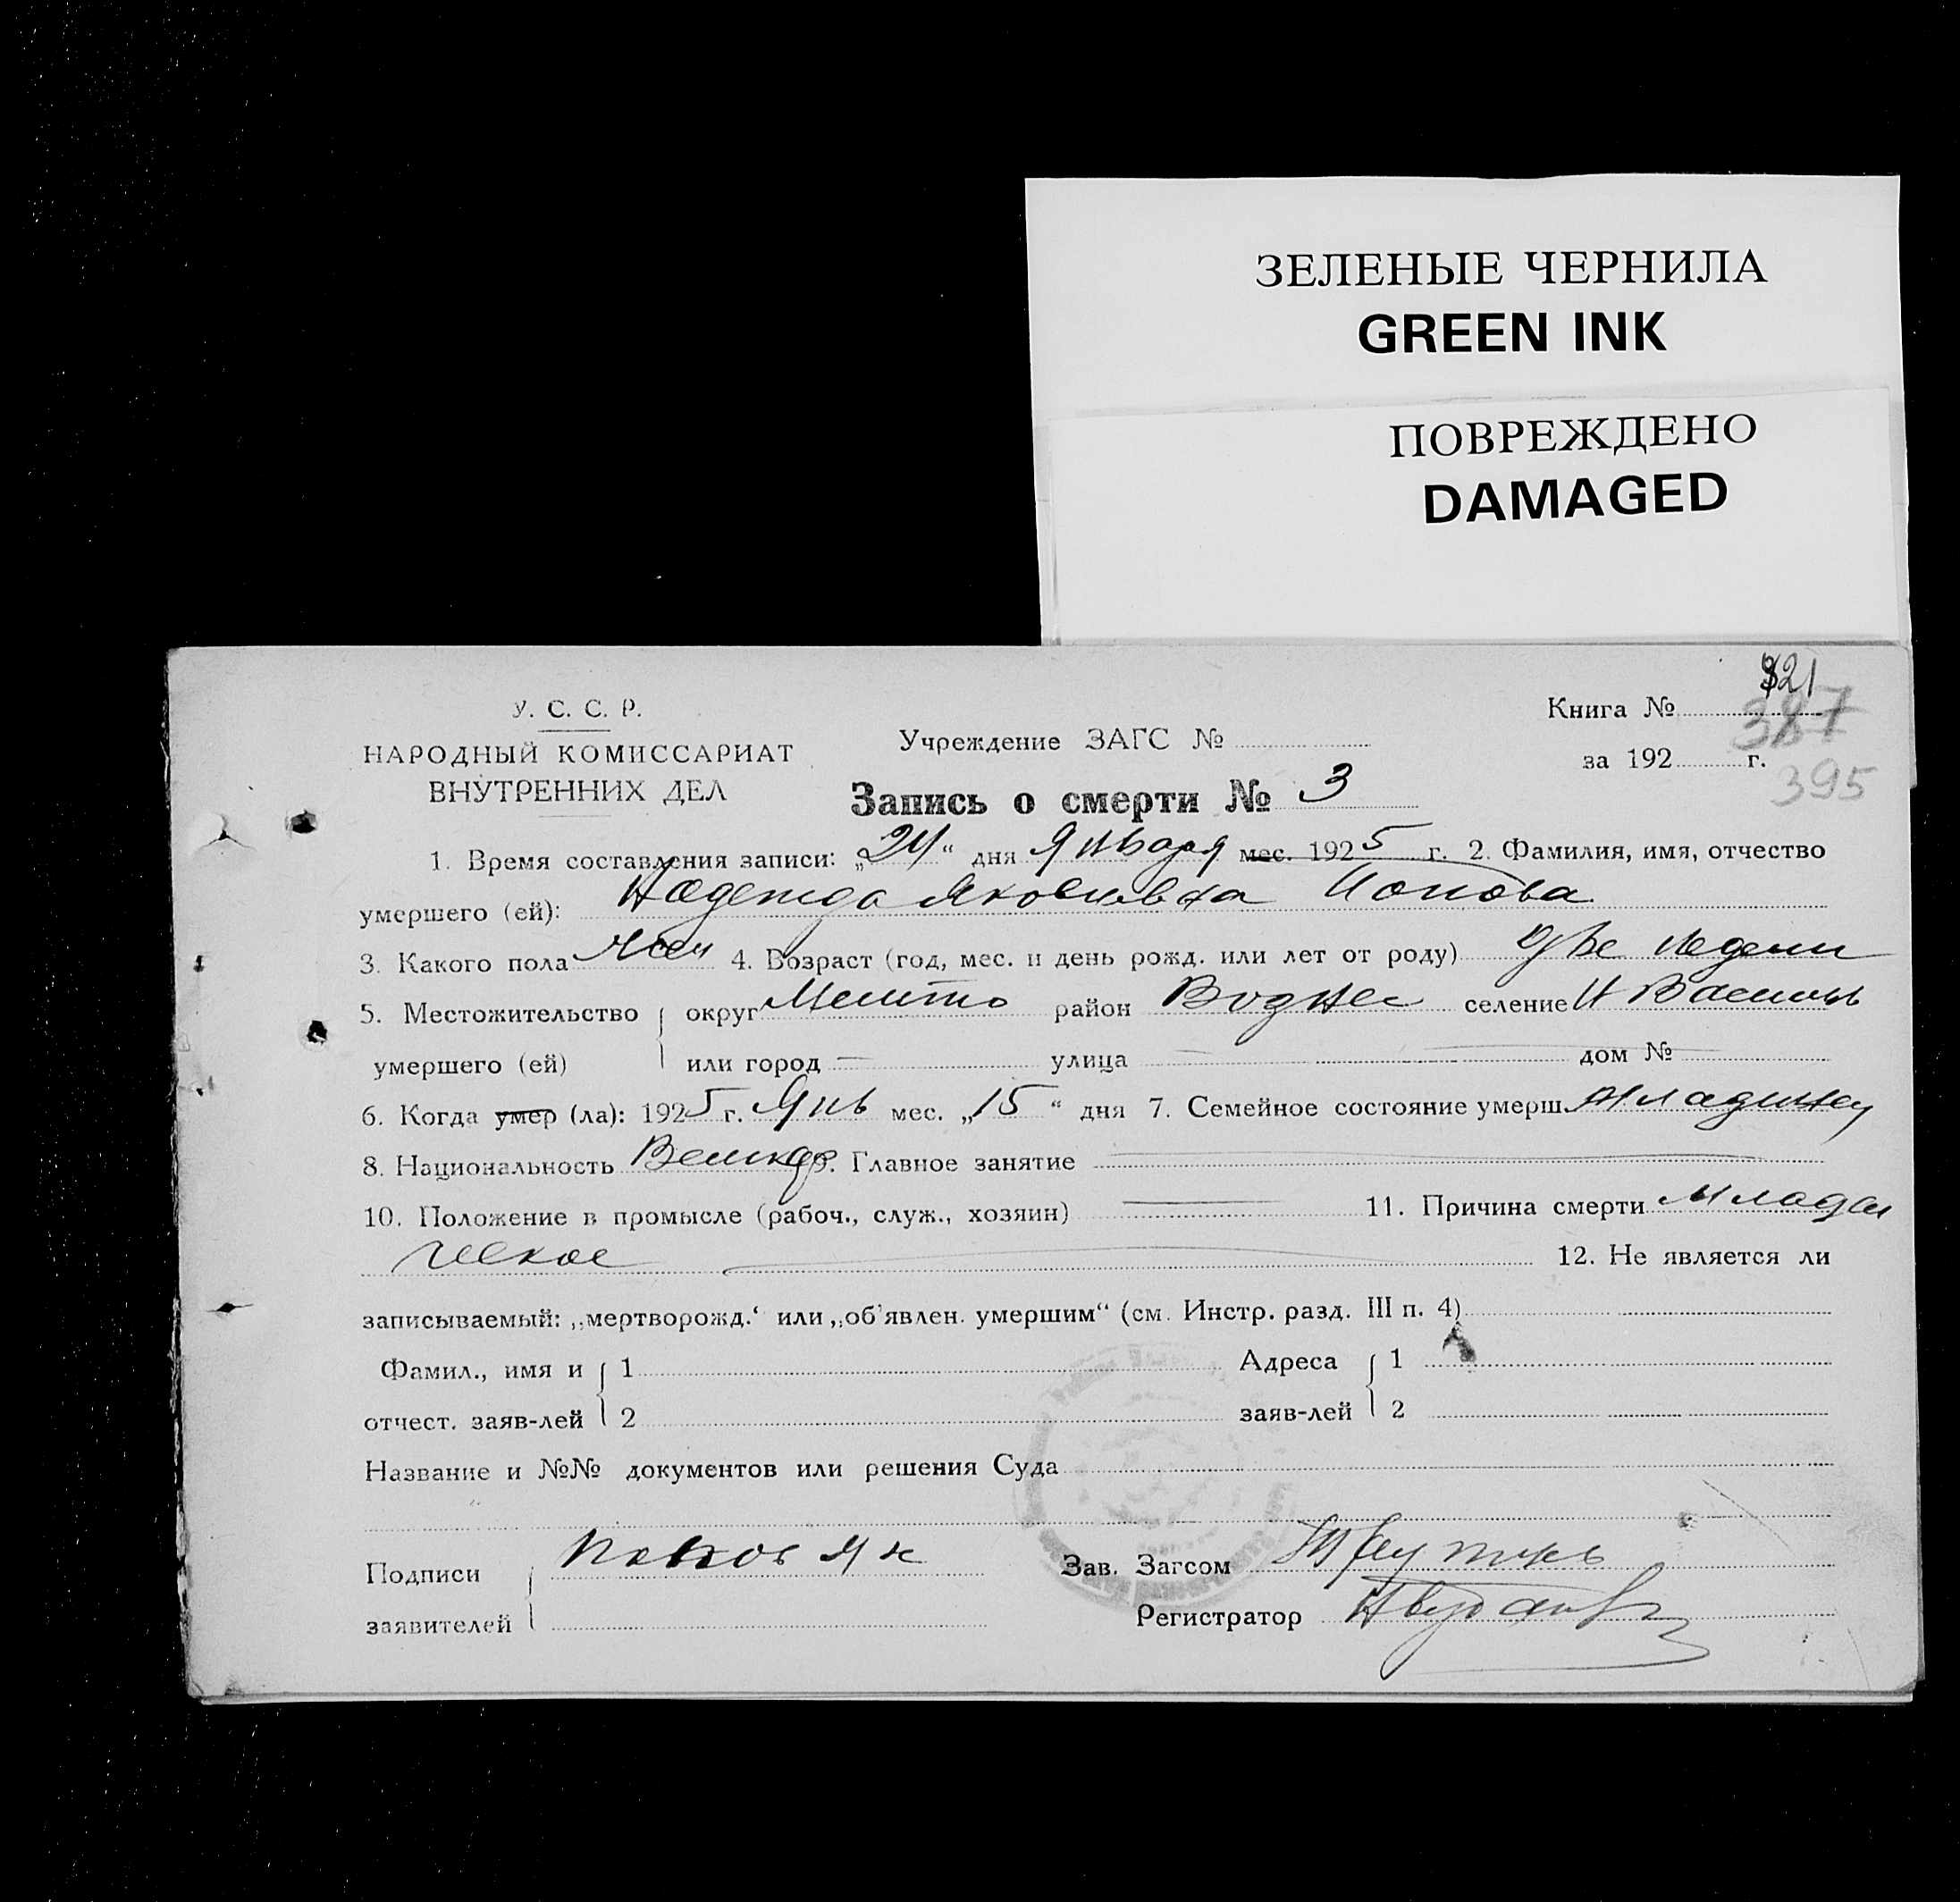 ЗЕЛЕНЫЕ ЧЕРНИЛА
GREEN INK
ПОВРЕЖДЕНО
DAMAGED
321
У. С. С. Р.
НАРОДНЫЙ КОМИССАРИАТ
ВНУТРЕННИХ ДЕЛ
Учреждение ЗАГС №
Книга № 387
за 192 г.
395
Запись о смерти № 3
1. Время составления записи: „24“ дня Января мес. 1925 г. 2. Фамилия, имя, отчество
умершего (ей): Надежда Яковлевна Попова
3. Какого пола Жен 4. Возраст (год, мес. и день рожд. или лет от роду) две недели
5. Местожительство округ Мелито район Вознес селение Н Василь
умершего (ей) или город — улица — дом №
6. Когда умер (ла): 1925 г. Янв мес. „15“ дня 7. Семейное состояние умерш. младенец
8. Национальность Великор 9. Главное занятие —
10. Положение в промысле (рабоч., служ., хозяин) — 11. Причина смерти младен
ческое — 12. Не является ли
записываемый: „мертворожд.‘ или „об’явлен. умершим“ (см. Инстр. разд. III п. 4)
Фамил., имя и 1 Адреса 1
отчест. заяв-лей 2 заяв-лей 2
Название и №№ документов или решения Суда
Подписи Попов Як Зав. Загсом
заявителей Регистратор